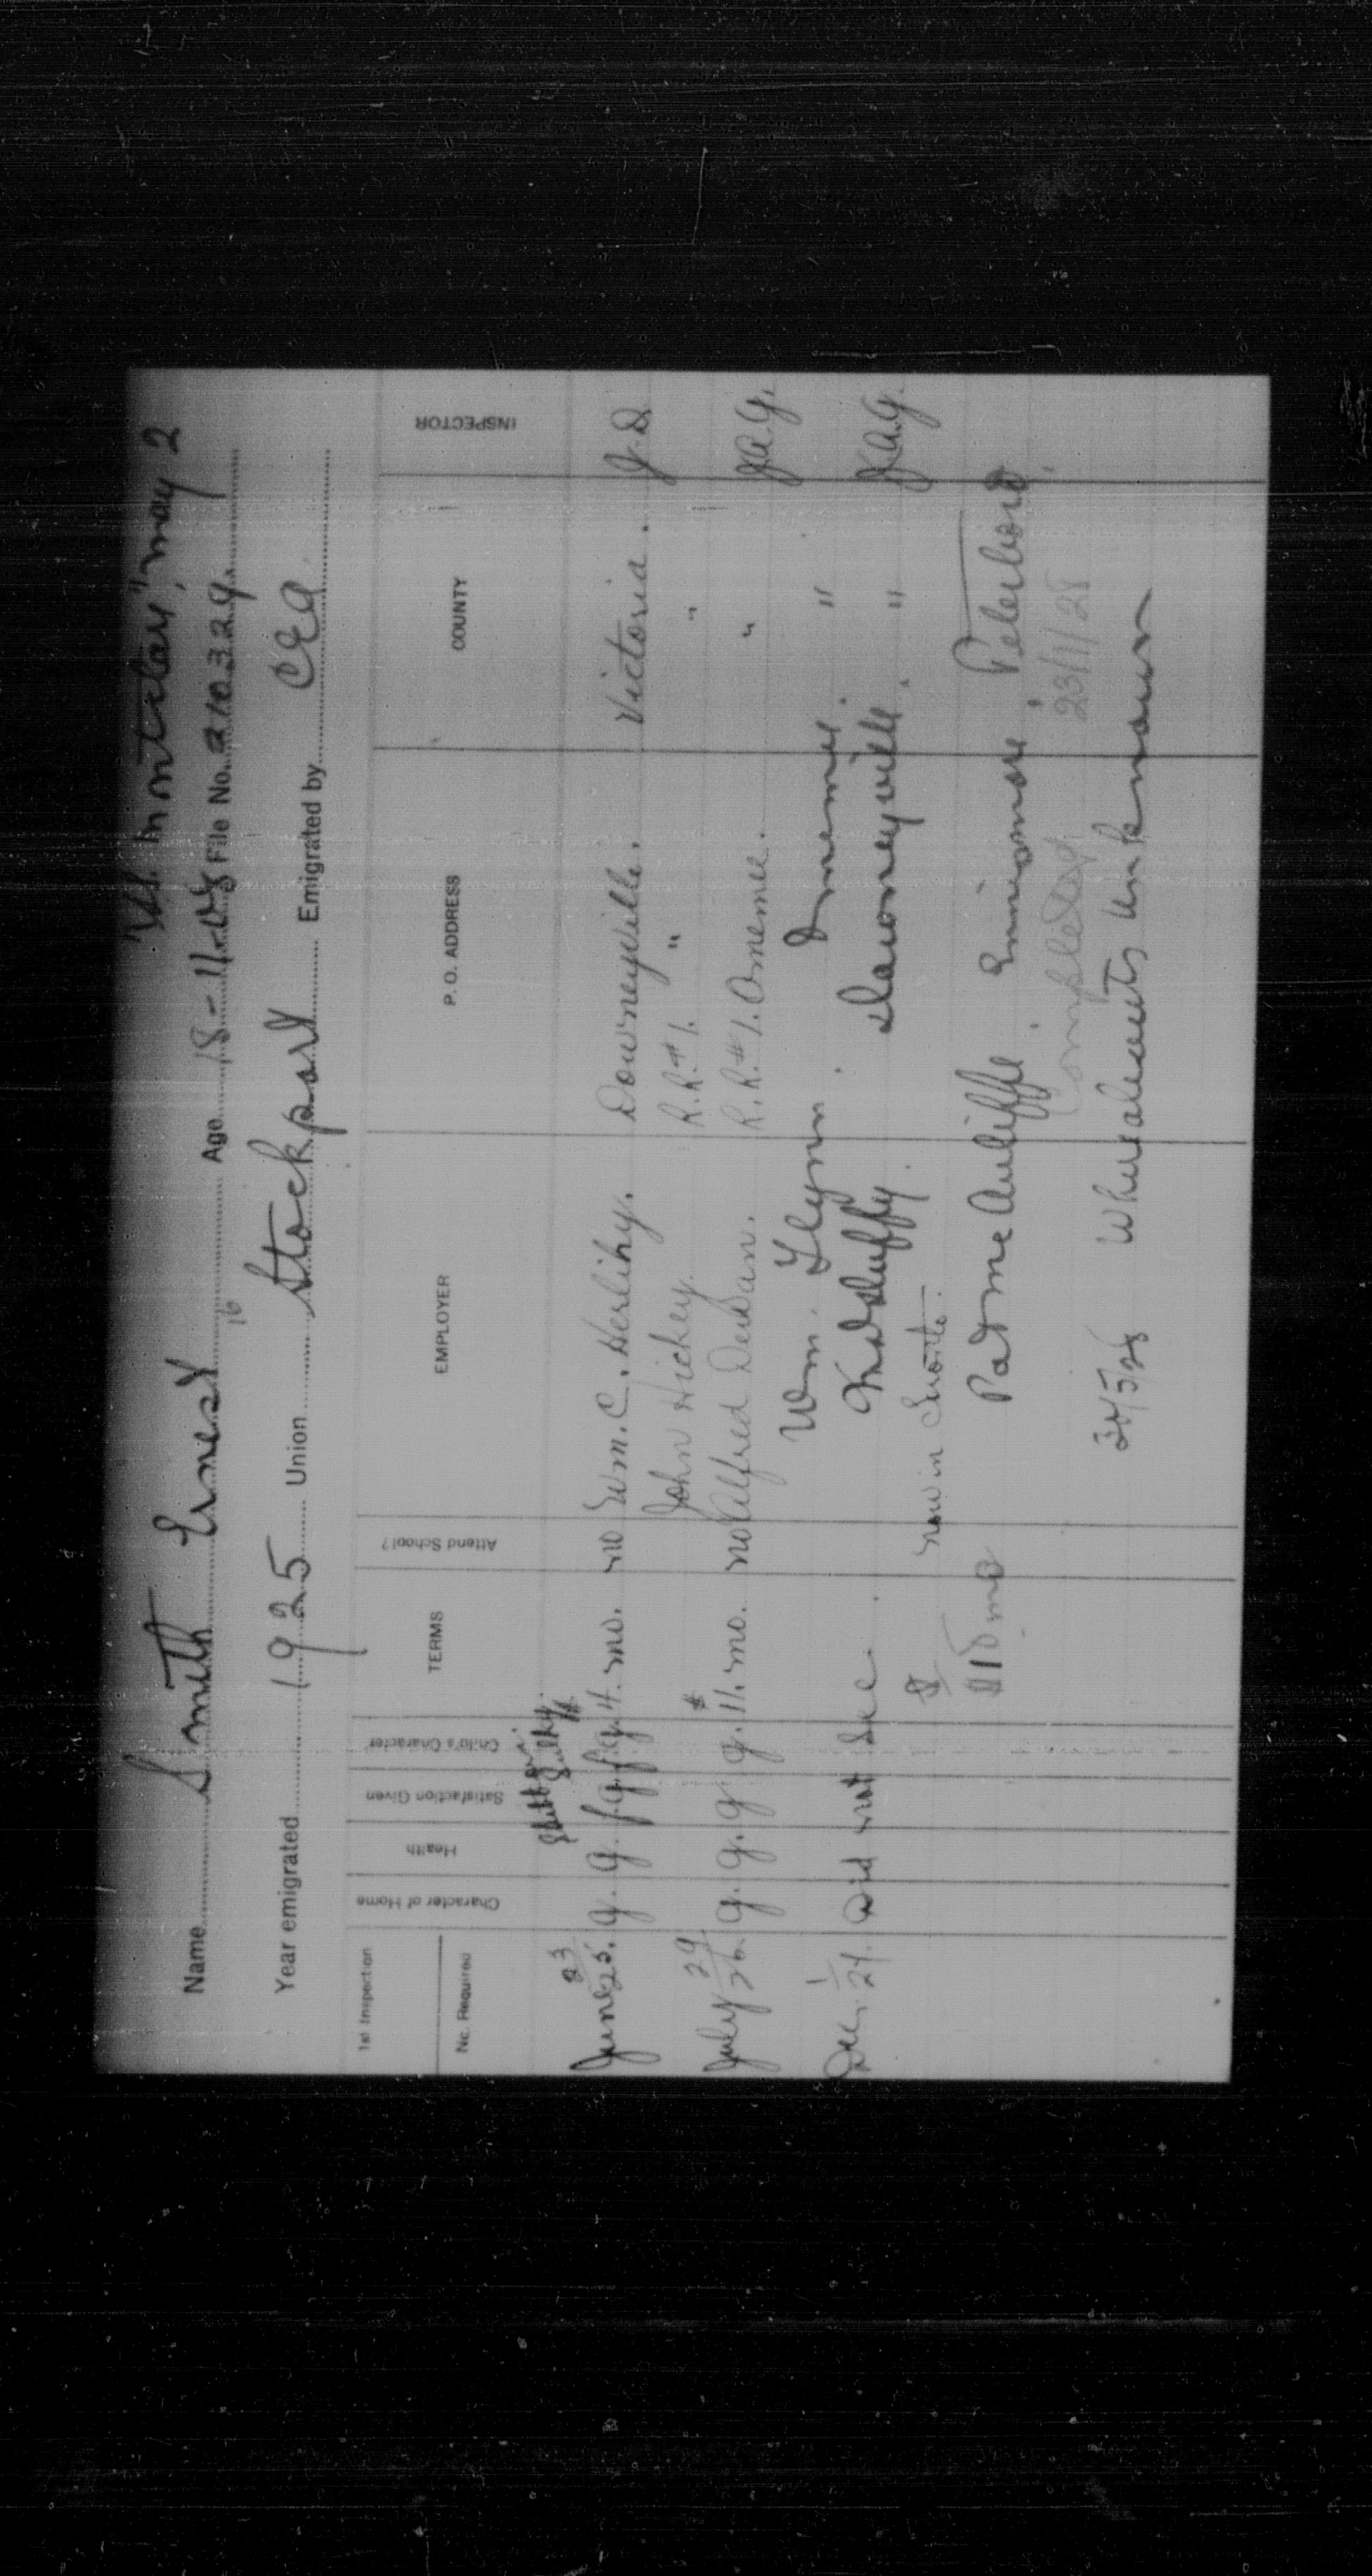 May 2
Name Smith Ernest Age 18 - File No. 210329.
16
Year emigrated 1925 Union Stockport Emigrated by CEA
1st Inspection
No. Required
Character of Home
Health
Satisfaction Given
Child's Character
TERMS
Attend School?
EMPLOYER
P. O. ADDRESS
COUNTY
INSPECTOR
Sulky.
June 23/25. g. g. f.g. f.g. $4. mo. no Wm. C. Herlihy. Downeyville. Victoria. J.D
John Hickey. R.R.#1. " "
July 29/26 g. g. g. g. $11. mo. no Alfred R.R.#1. Omemee. " J.A.G.
Wm. Flynn. Omemee. "
Dec. 1/27. Did not see. Downeyville. " J.A.G.
now in
$15 mo Pat McAuliffe. Ennismore, Peterboro
Completed 23/11/28
Whereabouts unknown